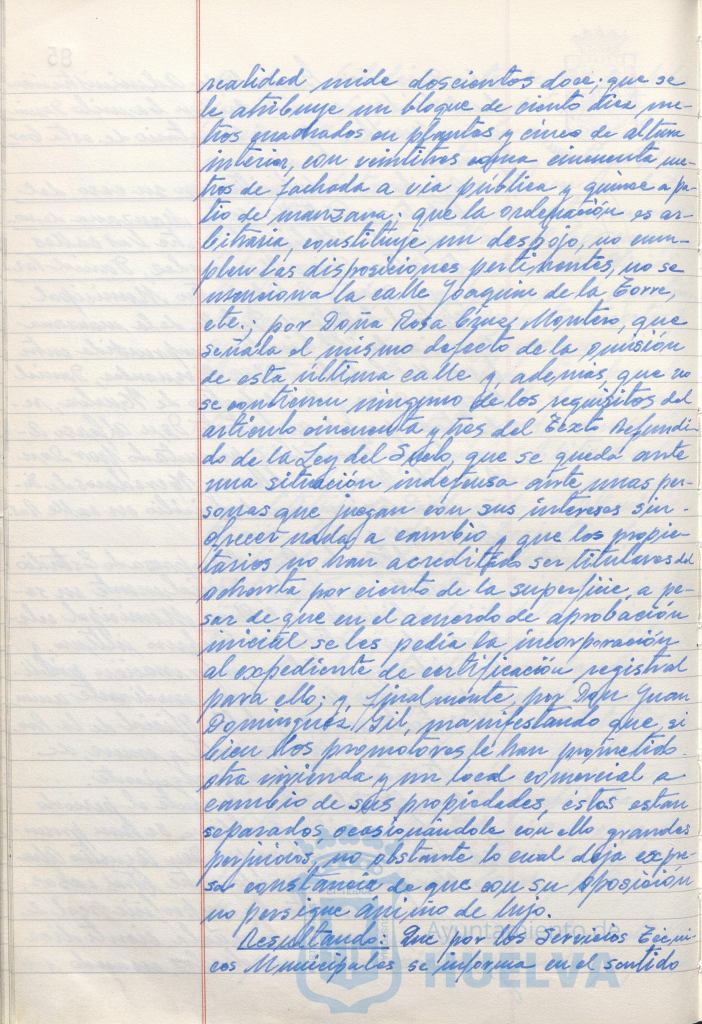 realidad mide doscientos doce; que se
le atribuye un bloque de ciento diez me-
tros cuadrados en plantas y cinco de altura
interior, con veintitres coma cincuenta me-
tros de fachada a via pública y quince a pa-
tio de manzana; que la ordenación es ar-
bitraria, constituye un despojo, no cum-
plen las disposiciones pertinentes, no se
menciona la calle Joaquin de la Torre,
etc.; por Doña Rosa Montero, que
señala el mismo defecto de la omisión
de esta última calle y, además, que no
se contienen ninguno de los requisitos del
artículo cincuenta y tres del Texto Refundi-
do de la Ley del Suelo, que se queda ante
una situación indefensa ante unas per-
sonas que juegan con sus intereses sin
ofrecer nada a cambio y que los propie-
tarios no han acreditado ser titulares del
ochenta por ciento de la superficie, a pe-
sar de que en el acuerdo de aprobación
inicial se les pedía la incorporación
al expediente de certificación registral
para ello; y, finalmente, por Don Juan
Dominguez Gil, manifestando que, si
bien los promotores le han prometido
otra vivienda y un local comercial a
cambio de sus propiedades, éstos estan
separados ocasionándole con ello grandes
perjuicios, no obstante lo cual deja expre-
sar constancia de que con su oposición
no persigue ánimo de lujo.
Resultando: Que por los Servicios Técni-
cos Municipales se informa en el sentido
Ayuntamiento de
HUELVA